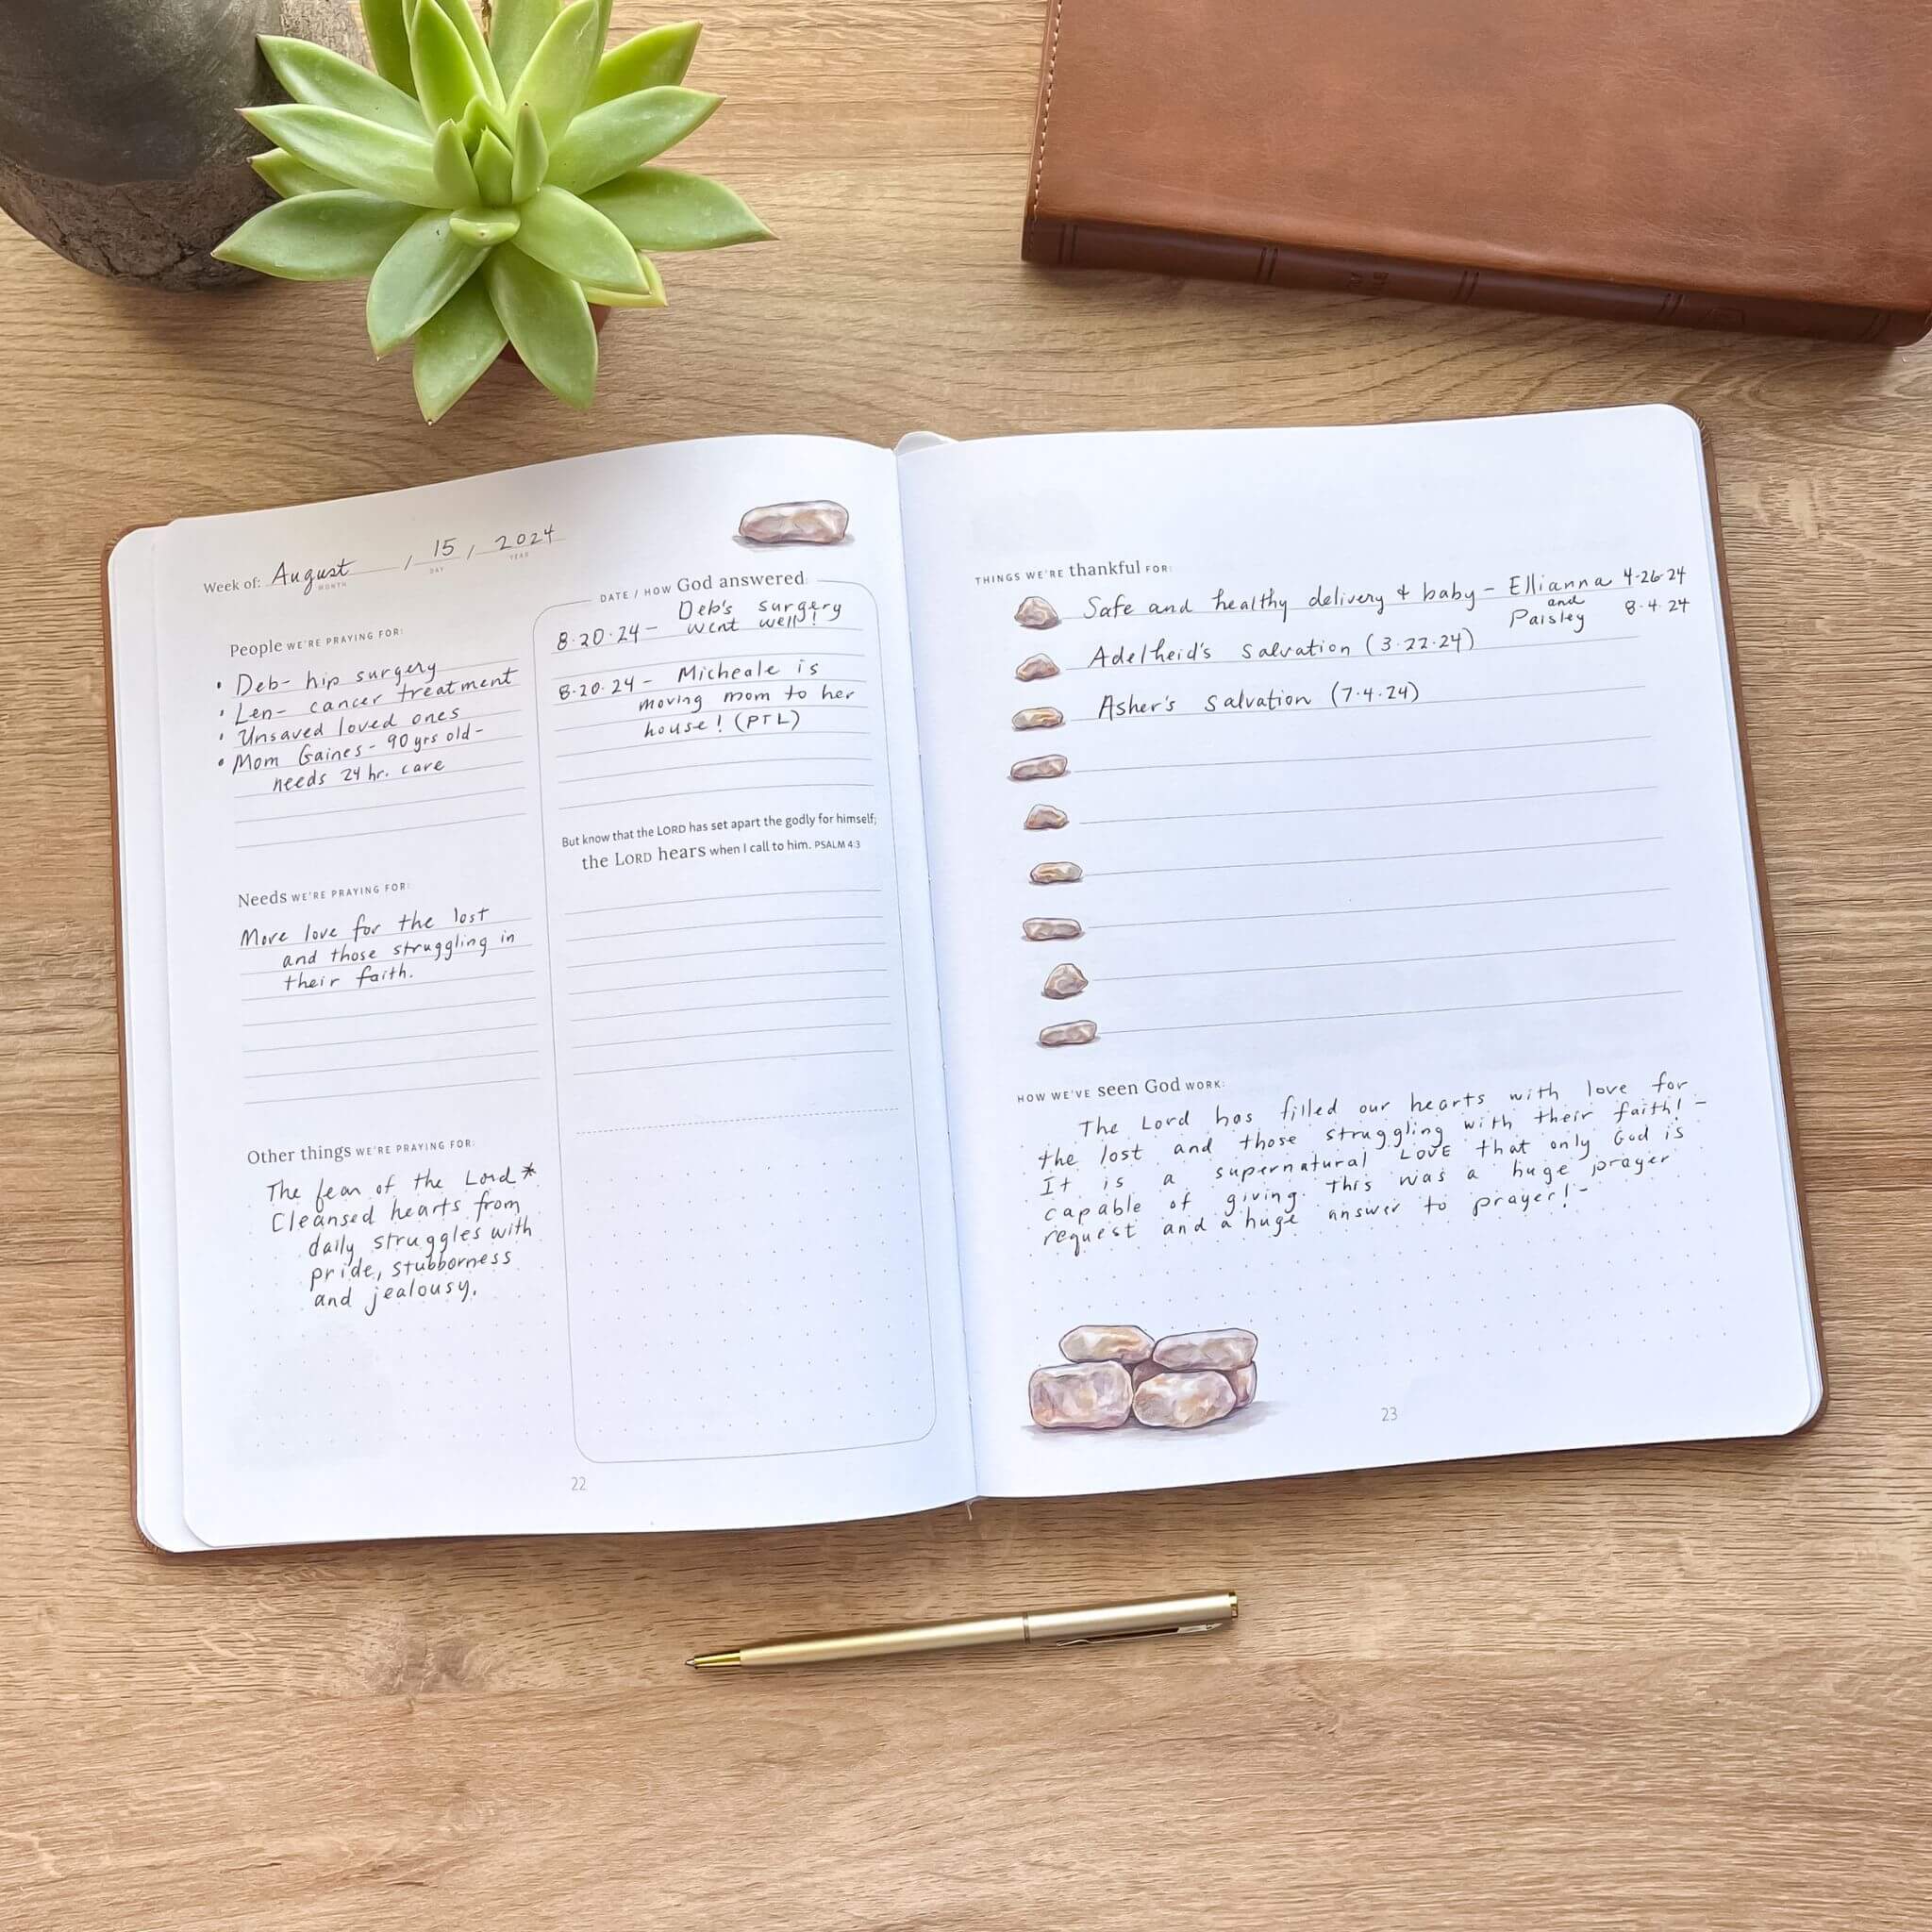 Week of: August / 15 / 2024
MONTH DAY YEAR
People WE'RE PRAYING FOR:
• Deb- hip surgery
• Len- cancer treatment
• Unsaved loved ones
• Mom Gaines- 90 yrs old-
needs 24 hr. care
Needs WE'RE PRAYING FOR:
More love for the lost
and those struggling in
their faith.
Other things WE'RE PRAYING FOR:
The fear of the Lord *
Cleansed hearts from
daily struggles with
pride, stubborness
and jealousy.
DATE / HOW God answered:
8·20·24- Deb's surgery
went well!
8·20·24- Micheale is
moving mom to her
house! (PTL)
But know that the LORD has set apart the godly for himself;
the LORD hears when I call to him. PSALM 4:3
22
THINGS WE'RE thankful FOR:
Safe and healthy delivery & baby- Ellianna 4-26-24
and
Paisley 8·4·24
Adelheid's Salvation (3·22·24)
Asher's Salvation (7·4·24)
HOW WE'VE seen God WORK:
The Lord has filled our hearts with love for
the lost and those struggling with their faith! -
It is a supernatural LOVE that only God is
capable of giving. This was a huge prayer
request and a huge answer to prayer! -
23